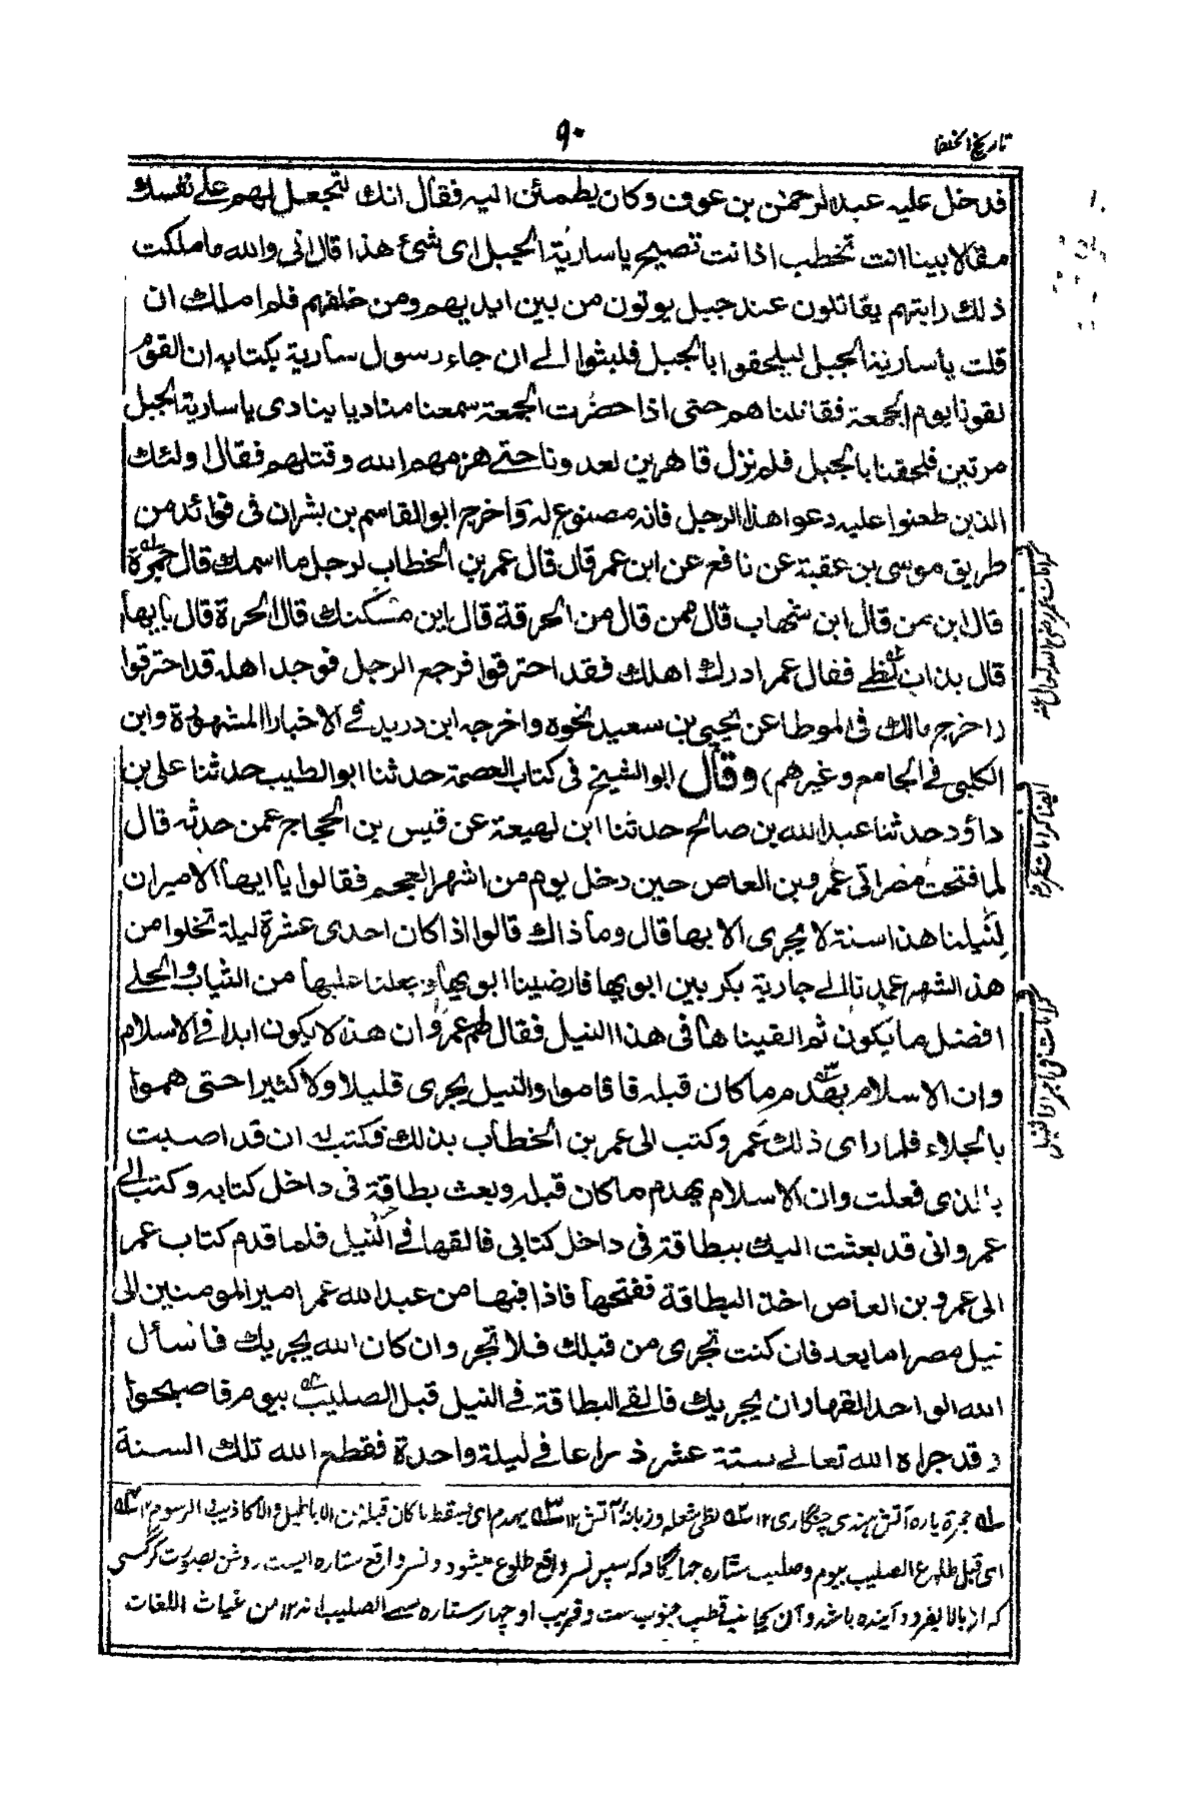 تاریخ الخلفا
۹۰
فدخل علیہ عبدالرحمن بن عوف وکان یطمئن الیہ فقال انك لتجعل لہم علے نفسك
مقالا بینا انت تخطب اذ انت تصیح یا ساریۃ الجبل ای شئ ھذا قال انی واللہ ما ملکت
ذلك رایتہم یقاتلون عند جبل یوتون من بین ایدیہم ومن خلفہم فلم املك ان
قلت یا ساریۃ الجبل لیلحقوا بالجبل فلبثوا الے ان جاء رسول ساریۃ بکتابہ ان القوم
لقونا یوم الجمعۃ فقاتلناھم حتی اذا حضرت الجمعۃ سمعنا منادیا ینادی یا ساریۃ الجبل
مرتین فلحقنا بالجبل فلم نزل قاھرین لعدونا حتے ھزمہم اللہ وقتلہم فقال اولئك
الذین طعنوا علیہ دعوا ھذا الرجل فانہ مصنوع لہ واخرج ابوالقاسم بن بشران فی فوائدہ من
طریق موسی بن عقبۃ عن نافع عن ابن عمر قال قال عمر بن الخطاب لرجل ما اسمك قال جمرۃ
قال ابن من قال ابن شھاب قال ممن قال من الحرقۃ قال این مسکنك قال الحرۃ قال بایہا
قال بذات لظے فقال عمر ادرك اھلك فقد احترقوا فرجع الرجل فوجد اھلہ قد احترقوا
واخرج مالك فی الموطا عن یحیی بن سعید نحوہ واخرجہ ابن درید فے الاخبار المشہورۃ وابن
الکلبی فے الجامع وغیرھم) وقال ابوالشیخ فی کتاب العصمۃ حدثنا ابو الطیب حدثنا علی بن
داؤد حدثنا عبداللہ بن صالح حدثنا ابن لھیعۃ عن قیس بن الحجاج عمن حدثہ قال
لما فتحت مصر اتی عمرو بن العاص حین دخل یوم من اشہر العجم فقالوا یا ایہا الامیر ان
لنیلنا ھذا سنۃ لا یجری الا بہا قال وما ذاك قالوا اذا کان احدی عشرۃ لیلۃ تخلوا من
ھذ الشہر عمدنا الے جاریۃ بکر بین ابویہا فارضینا ابویہا وجعلنا علیہا من الثیاب والحلے
افضل ما یکون ثم القیناھا فی ھذا النیل فقال لہم عمرو ان ھذ لا یکون ابدا فے الاسلام
وان الاسلام یہدم ما کان قبلہ فاقاموا والنیل یجری قلیلا ولا کثیرا حتی ھموا
بالجلاء فلما رای ذلك عمرو کتب الی عمر بن الخطاب بذلك فکتب لہ ان قد اصبت
بالذی فعلت وان الاسلام یہدم ما کان قبلہ وبعث بطاقۃ فی داخل کتابہ وکتب الی
عمرو انی قد بعثت الیك ببطاقۃ فی داخل کتابی فالقھا فے النیل فلما قدم کتاب عمر
الی عمرو بن العاص اخذ البطاقۃ ففتحہا فاذا فیہا من عبداللہ عمر امیر المومنین الی
نیل مصر اما بعد فان کنت تجری من قبلك فلا تجر وان کان اللہ یجریك فاسأل
اللہ الواحد القہار ان یجریك فالقے البطاقۃ فے النیل قبل الصلیب بیوم فاصبحوا
وقد جراہ اللہ تعالے ستۃ عشر ذراعا فے لیلۃ واحدۃ فقطع اللہ تلك السنۃ
لہ جمرۃ پارہ آتش ہندی چنگاری ۱۲ سلہ لظی شعلہ وزبانہ آتش ۱۲ سلہ یہدم ای یسقط ما کان قبلہ من الاباطیل والاکاذیب الرسوم ۱۲ سلہ
ای قبل طلوع الصلیب بیوم وصلیب ستارہ کہ سپس نسر واقع طلوع میشود ونسر واقع ستارہ ایست روشن بصورت کرگسی
کہ از بالا بفرود آیندہ باشد وآن بجانب قطب جنوب ست وقریب او چہار ستارہ مسمے الصلیب اند ۱۲ من غیاث اللغات
کرامات عمر رضی اللہ تعالی عنہ
ایضا کرامات عمر رض
کرامات فی اجراء النیل